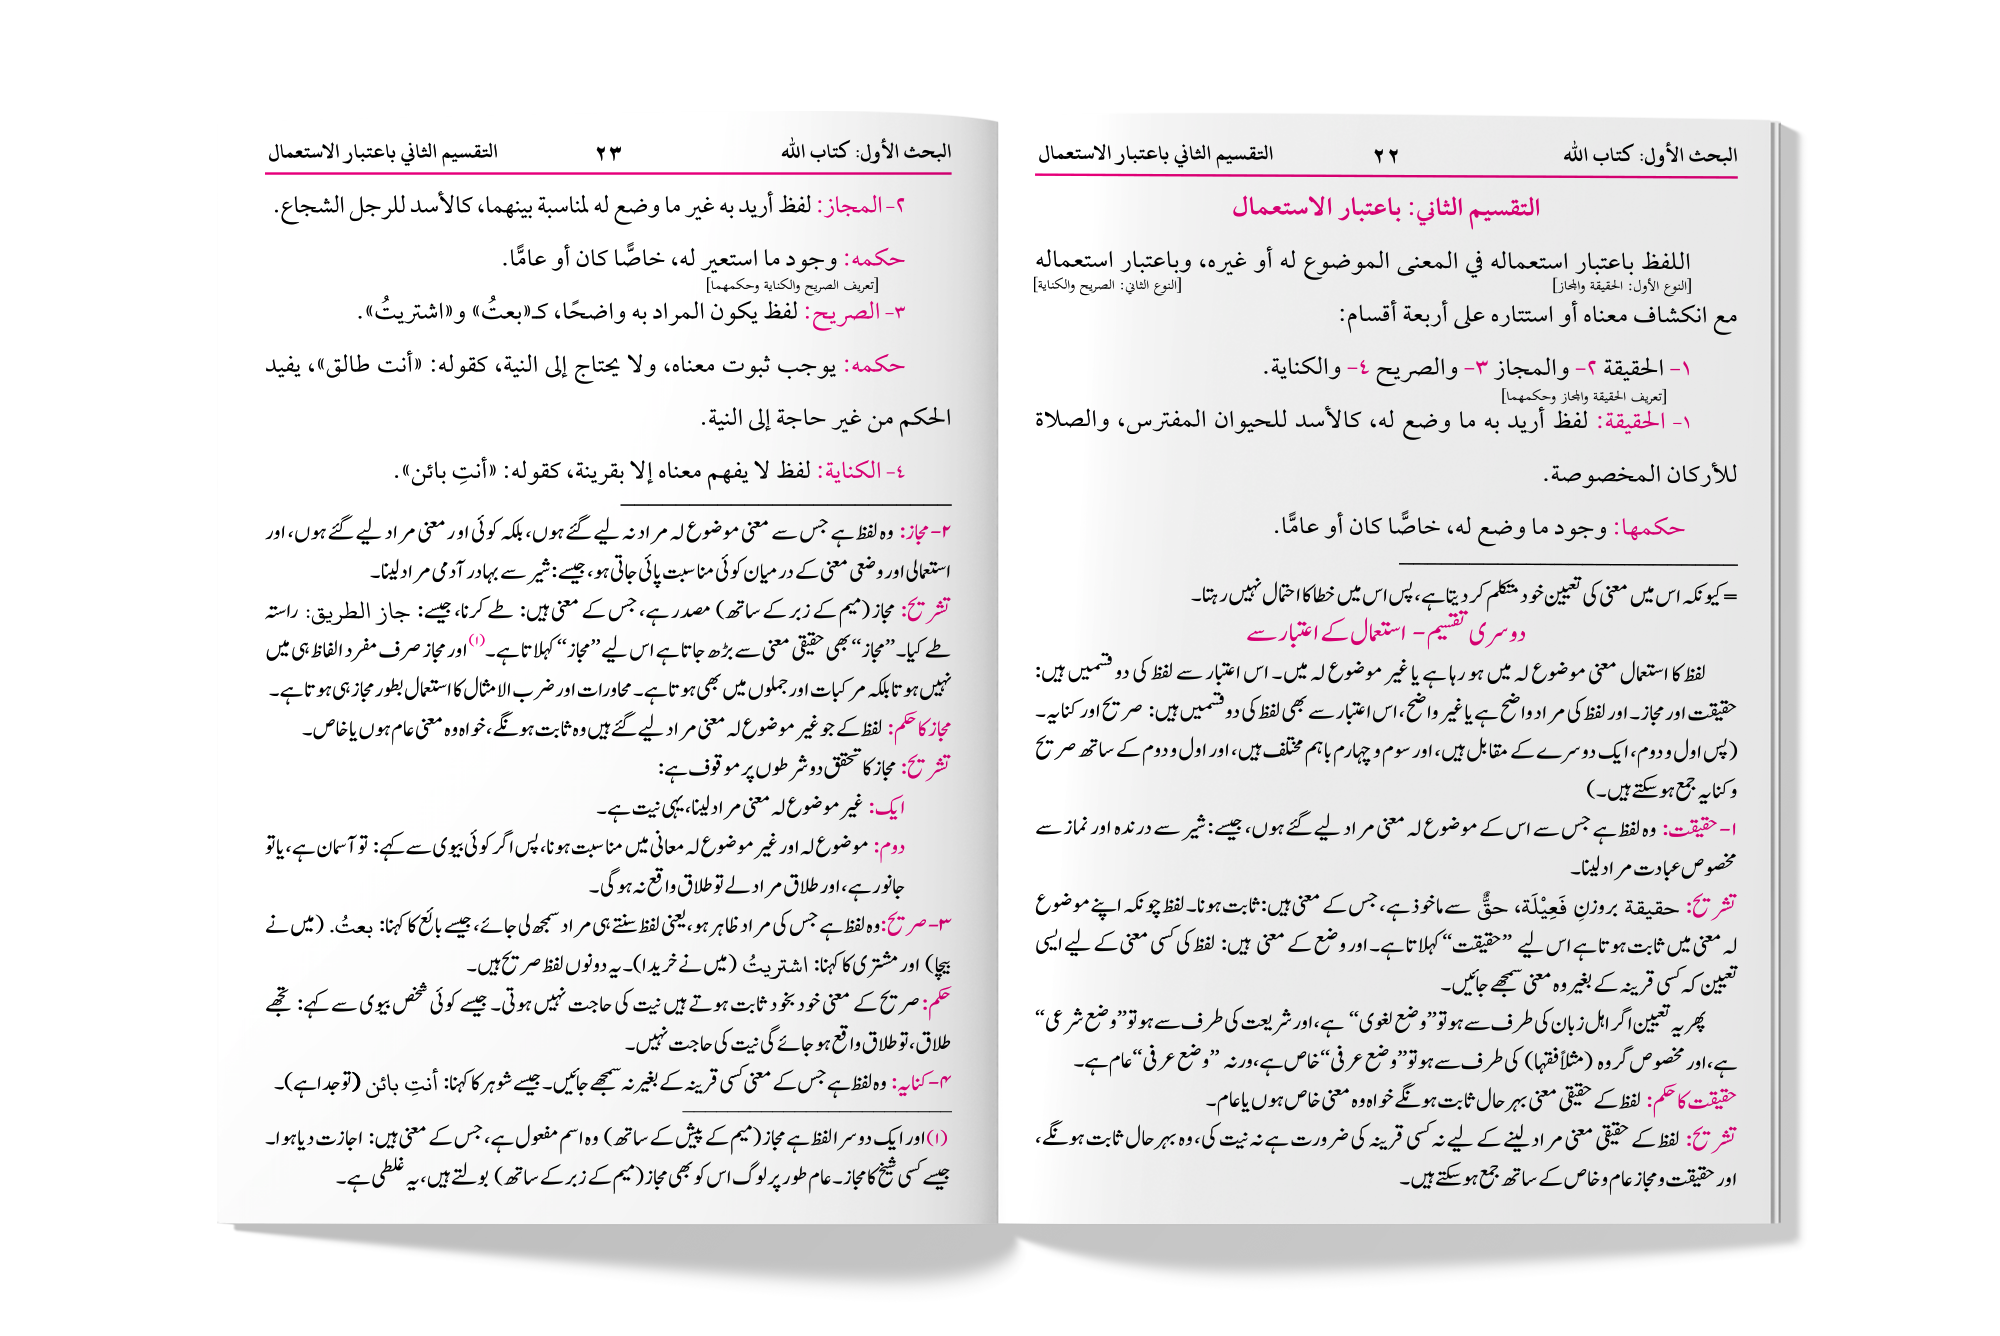 البحث الأول: كتاب الله ٢٢ التقسيم الثاني باعتبار الاستعمال
التقسيم الثاني: باعتبار الاستعمال
اللفظ باعتبار استعماله في المعنى الموضوع له أو غيره، وباعتبار استعماله
[النوع الأول: الحقيقة والمجاز] [النوع الثاني: الصريح والكناية]
مع انكشاف معناه أو استتاره على أربعة أقسام:
١- الحقيقة ٢- والمجاز ٣- والصريح ٤- والكناية.
[تعريف الحقيقة والمجاز وحكمهما]
١- الحقيقة: لفظ أريد به ما وضع له، كالأسد للحيوان المفترس، والصلاة
للأركان المخصوصة.
حكمها: وجود ما وضع له، خاصًّا كان أو عامًّا.
= کیونکہ اس میں معنی کی تعیین خود متکلم کر دیتا ہے، پس اس میں خطا کا احتمال نہیں رہتا۔
دوسری تقسیم – استعمال کے اعتبار سے
لفظ کا استعمال معنی موضوع لہ میں ہو رہا ہے یا غیر موضوع لہ میں۔ اس اعتبار سے لفظ کی دو قسمیں ہیں:
حقیقت اور مجاز۔ اور لفظ کی مراد واضح ہے یا غیر واضح، اس اعتبار سے بھی لفظ کی دو قسمیں ہیں: صریح اور کنایہ۔
(پس اول و دوم، ایک دوسرے کے مقابل ہیں، اور سوم و چہارم باہم مختلف ہیں، اور اول و دوم کے ساتھ صریح
و کنایہ جمع ہو سکتے ہیں۔)
۱- حقیقت: وہ لفظ ہے جس سے اس کے موضوع لہ معنی مراد لیے گئے ہوں، جیسے: شیر سے درندہ اور نماز سے
مخصوص عبادت مراد لینا۔
تشریح: حقيقة بروزنِ فَعِيْلَة، حقٌّ سے ماخوذ ہے، جس کے معنی ہیں: ثابت ہونا۔ لفظ چونکہ اپنے موضوع
لہ معنی میں ثابت ہوتا ہے اس لیے ”حقیقت“ کہلاتا ہے۔ اور وضع کے معنی ہیں: لفظ کی کسی معنی کے لیے ایسی
تعیین کہ کسی قرینہ کے بغیر وہ معنی سمجھے جائیں۔
پھر یہ تعیین اگر اہل زبان کی طرف سے ہو تو ”وضع لغوی“ ہے، اور شریعت کی طرف سے ہو تو ”وضع شرعی“
ہے، اور مخصوص گروہ (مثلاً فقہا) کی طرف سے ہو تو ”وضع عرفی“ خاص ہے، ورنہ ”وضع عرفی“ عام ہے۔
حقیقت کا حکم: لفظ کے حقیقی معنی بہر حال ثابت ہونگے خواہ وہ معنی خاص ہوں یا عام۔
تشریح: لفظ کے حقیقی معنی مراد لینے کے لیے نہ کسی قرینہ کی ضرورت ہے نہ نیت کی، وہ بہر حال ثابت ہونگے،
اور حقیقت و مجاز عام و خاص کے ساتھ جمع ہو سکتے ہیں۔
البحث الأول: كتاب الله ٢٣ التقسيم الثاني باعتبار الاستعمال
٢- المجاز: لفظ أريد به غير ما وضع له لمناسبة بينهما، كالأسد للرجل الشجاع.
حكمه: وجود ما استعير له، خاصًّا كان أو عامًّا.
[تعريف الصريح والكناية وحكمهما]
٣- الصريح: لفظ يكون المراد به واضحًا، كـ«بعتُ» و«اشتريتُ».
حكمه: يوجب ثبوت معناه، ولا يحتاج إلى النية، كقوله: «أنت طالق»، يفيد
الحكم من غير حاجة إلى النية.
٤- الكناية: لفظ لا يفهم معناه إلا بقرينة، كقوله: «أنتِ بائن».
۲- مجاز: وہ لفظ ہے جس سے معنی موضوع لہ مراد نہ لیے گئے ہوں، بلکہ کوئی اور معنی مراد لیے گئے ہوں، اور
استعمالی اور وضعی معنی کے درمیان کوئی مناسبت پائی جاتی ہو، جیسے: شیر سے بہادر آدمی مراد لینا۔
تشریح: مجاز (میم کے زبر کے ساتھ) مصدر ہے، جس کے معنی ہیں: طے کرنا، جیسے: جاز الطريق: راستہ
طے کیا۔ ”مجاز“ بھی حقیقی معنی سے بڑھ جاتا ہے اس لیے ”مجاز“ کہلاتا ہے۔(۱) اور مجاز صرف مفرد الفاظ ہی میں
نہیں ہوتا بلکہ مرکبات اور جملوں میں بھی ہوتا ہے۔ محاورات اور ضرب الامثال کا استعمال بطور مجاز ہی ہوتا ہے۔
مجاز کا حکم: لفظ کے جو غیر موضوع لہ معنی مراد لیے گئے ہیں وہ ثابت ہونگے، خواہ وہ معنی عام ہوں یا خاص۔
تشریح: مجاز کا تحقق دو شرطوں پر موقوف ہے:
ایک: غیر موضوع لہ معنی مراد لینا، یہی نیت ہے۔
دوم: موضوع لہ اور غیر موضوع لہ معانی میں مناسبت ہونا، پس اگر کوئی بیوی سے کہے: تو آسمان ہے، یا تو
جانور ہے، اور طلاق مراد لے تو طلاق واقع نہ ہوگی۔
۳- صریح: وہ لفظ ہے جس کی مراد ظاہر ہو، یعنی لفظ سنتے ہی مراد سمجھ لی جائے، جیسے بائع کا کہنا: بعتُ. (میں نے
بیچا) اور مشتری کا کہنا: اشتريتُ (میں نے خریدا)۔ یہ دونوں لفظ صریح ہیں۔
حکم: صریح کے معنی خود بخود ثابت ہوتے ہیں نیت کی حاجت نہیں ہوتی۔ جیسے کوئی شخص بیوی سے کہے: تجھے
طلاق، تو طلاق واقع ہو جائے گی نیت کی حاجت نہیں۔
۴- کنایہ: وہ لفظ ہے جس کے معنی کسی قرینہ کے بغیر نہ سمجھے جائیں۔ جیسے شوہر کا کہنا: أنتِ بائن (تو جدا ہے)۔
(۱) اور ایک دوسرا لفظ ہے مجاز (میم کے پیش کے ساتھ) وہ اسم مفعول ہے، جس کے معنی ہیں: اجازت دیا ہوا۔
جیسے کسی شیخ کا مجاز۔ عام طور پر لوگ اس کو بھی مجاز (میم کے زبر کے ساتھ) بولتے ہیں، یہ غلطی ہے۔